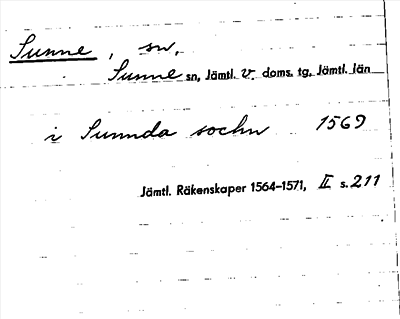 Sunne, sn.
Sunne sn, Jämtl. v. doms. tg, Jämtl. län
i Sunnda sochn 1569
Jämtl. Räkenskaper 1564–1571, II s. 211